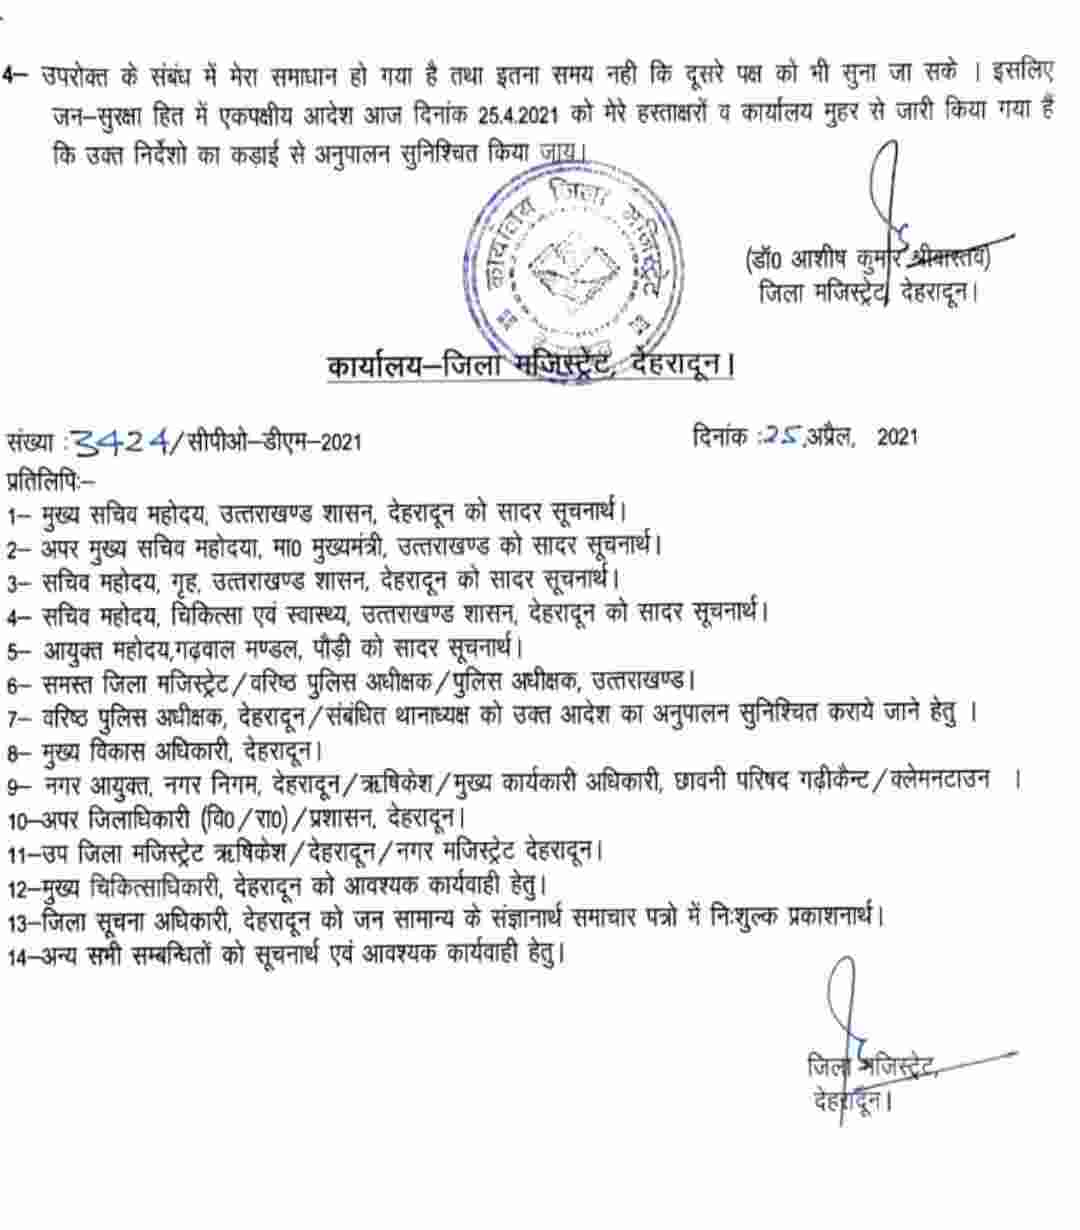 4– उपरोक्त के संबंध में मेरा समाधान हो गया है तथा इतना समय नही कि दूसरे पक्ष को भी सुना जा सके । इसलिए
जन–सुरक्षा हित में एकपक्षीय आदेश आज दिनांक 25.4.2021 को मेरे हस्ताक्षरों व कार्यालय मुहर से जारी किया गया है
कि उक्त निर्देशो का कड़ाई से अनुपालन सुनिश्चित किया जाय।
कार्यालय जिला मजिस्ट्रेट
(डॉ0 आशीष कुमार श्रीवास्तव)
जिला मजिस्ट्रेट, देहरादून।
कार्यालय–जिला मजिस्ट्रेट, देहरादून।
संख्या :3424/सीपीओ–डीएम–2021 दिनांक :25,अप्रैल, 2021
प्रतिलिपिः–
1– मुख्य सचिव महोदय, उत्तराखण्ड शासन, देहरादून को सादर सूचनार्थ।
2– अपर मुख्य सचिव महोदया, मा0 मुख्यमंत्री, उत्तराखण्ड को सादर सूचनार्थ।
3– सचिव महोदय, गृह, उत्तराखण्ड शासन, देहरादून को सादर सूचनार्थ।
4– सचिव महोदय, चिकित्सा एवं स्वास्थ्य, उत्तराखण्ड शासन, देहरादून को सादर सूचनार्थ।
5– आयुक्त महोदय,गढ़वाल मण्डल, पौड़ी को सादर सूचनार्थ।
6– समस्त जिला मजिस्ट्रेट/वरिष्ठ पुलिस अधीक्षक/पुलिस अधीक्षक, उत्तराखण्ड।
7– वरिष्ठ पुलिस अधीक्षक, देहरादून/संबंधित थानाध्यक्ष को उक्त आदेश का अनुपालन सुनिश्चित कराये जाने हेतु ।
8– मुख्य विकास अधिकारी, देहरादून।
9– नगर आयुक्त, नगर निगम, देहरादून/ऋषिकेश/मुख्य कार्यकारी अधिकारी, छावनी परिषद गढ़ीकैन्ट/क्लेमनटाउन ।
10–अपर जिलाधिकारी (वि0/रा0)/प्रशासन, देहरादून।
11–उप जिला मजिस्ट्रेट ऋषिकेश/देहरादून/नगर मजिस्ट्रेट देहरादून।
12–मुख्य चिकित्साधिकारी, देहरादून को आवश्यक कार्यवाही हेतु।
13–जिला सूचना अधिकारी, देहरादून को जन सामान्य के संज्ञानार्थ समाचार पत्रो में निःशुल्क प्रकाशनार्थ।
14–अन्य सभी सम्बन्धितों को सूचनार्थ एवं आवश्यक कार्यवाही हेतु।
जिला मजिस्ट्रेट,
देहरादून।